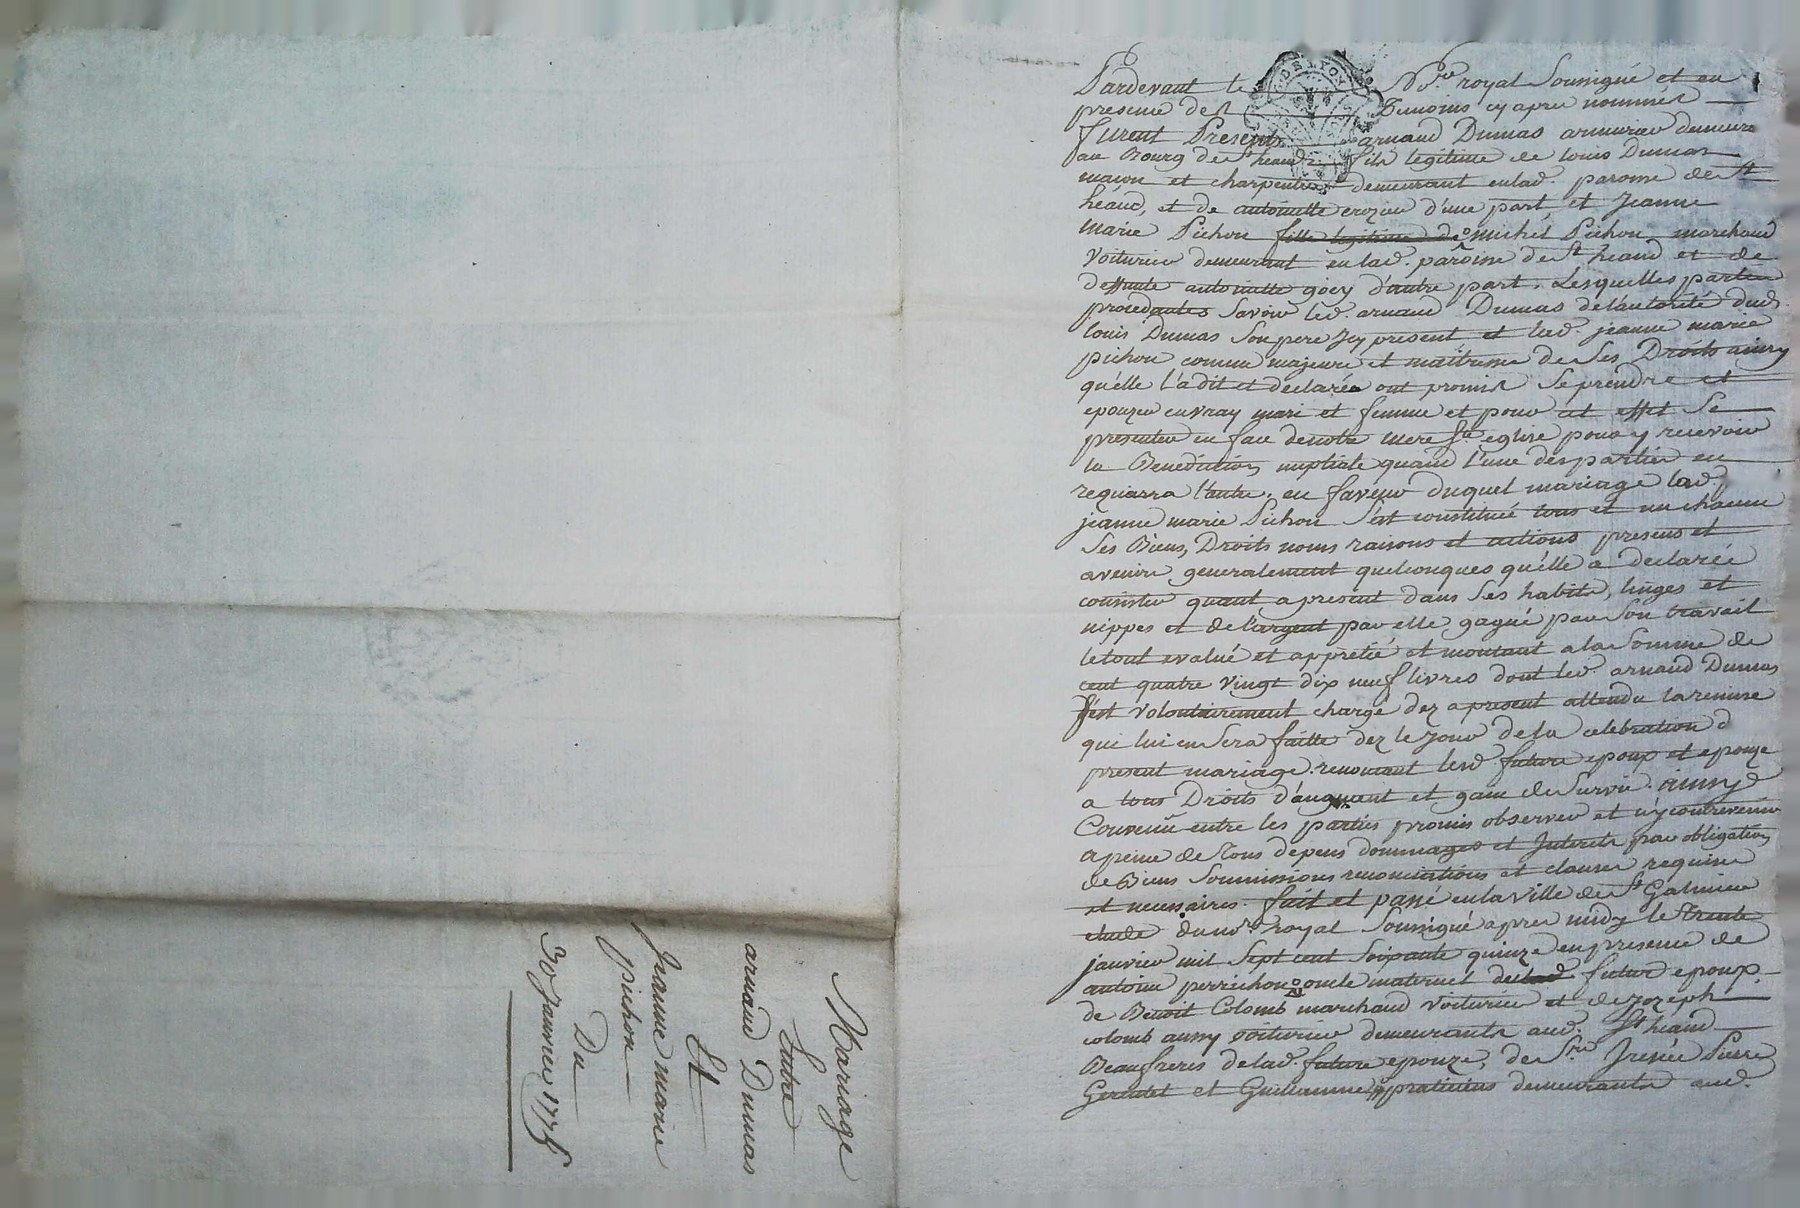 Pardevant le No.re royal Soussigné et en
presence des Temoins cy apres nommés
furent Presents arnaud Dumas armurier demeurt
au Bourg de St heand fils legitime de louis Dumas
maçon et charpentier demeurant en lad. paroisse de St
héand, et de antoinette crozier d'une part, et Jeanne
Marie Pichon fille legitime de michel Pichon marchand
Voiturier demeurant en lad. paroisse de St heand et de
deffunte antoinette goey d'autre part. Lesquelles parties
procedantes Savoir led. arnaud Dumas de l'autorité dud.
louis Dumas Son pere Icy present, et lad. jeanne marie
pichon comme majeure et maitresse de Ses Droits ainsy
qu'elle l'a dit et déclarée ont promis Se prendre et
epouzer en vray mari et femme et pour cet effet Se
presenter en face de notre mere Ste eglise pour y recevoir
la Benediction nuptiale quand l'une des parties en
requerra l'autre. en faveur duquel mariage lad.
jeanne marie Pichon S'est constituée tous et un chacun
Ses Biens, Droits noms raisons et actions presens et
avenir generalement quelconques qu'elle a declarée
consister quant a present dans Ses habits, linges et
nippes et de l'argent par elle gagné par Son travail
le tout evalué et apprétié et montant a la Somme de
cent quatre Vingt dix neuf livres dont led. arnaud Dumas
S'est Volontairement chargé dez a present attendu la remise
qui lui en Sera faitte dez le Jour de la celebration d
present mariage. renonçant lesd. futurs epoux et epouze
a tous Droits d'augment et gain de Survie. ainsy
Convenu entre les parties promis observer et n'y contrevenir
a peine de Tous depens dommages et Interets par obligation
de Biens Soumissions renonciations et clauses requises
et necessaires. fait et passé en la ville de St Galmier
etude du no.re royal Soussigné apres midy le Trente
janvier mil Sept cent Soixante quinze en presence de
antoine perrichon oncle maternel dud. futur epoux.
de Benoit Colomb marchand Voiturier et de Jozeph
colomb aussy voiturier demeurants aud. St héand
Beaufreres de lad. future epouze, de Srs Irenée Pierre
Gerentet et Guillaume praticiens demeurants aud.
Mariage
Entre
arnaud Dumas
Et
Jeanne marie
pichon
Du
30 Janvier 1775